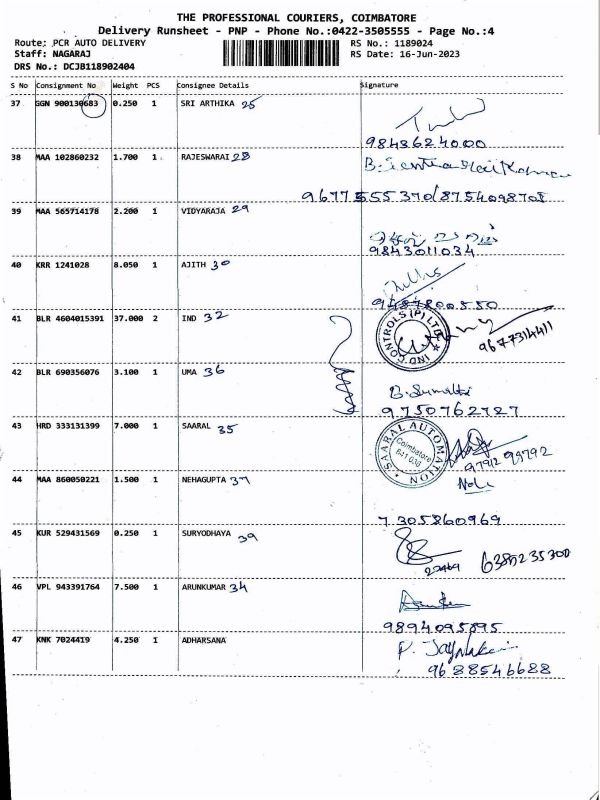 THE PROFESSIONAL COURIERS, COIMBATORE
Delivery Runsheet - PNP - Phone No.:0422-3505555 - Page No.:4
Route: PCR AUTO DELIVERY RS No.: 1189024
Staff: NAGARAJ RS Date: 16-Jun-2023
DRS No.: DCJB118902404
S No Consignment No Weight PCS Consignee Details Signature
37 GGN 900130683 0.250 1 SRI ARTHIKA 25
9843624000
38 MAA 102860232 1.700 1 RAJESWARAI 28
9677555370/8754098708
39 MAA 565714178 2.200 1 VIDYARAJA 29
9843011034
40 KRR 1241028 8.050 1 AJITH 30
9487800550
41 BLR 4604015391 37.000 2 IND 32
IND CONTROLS (P) LTD
9677314411
42 BLR 690356076 3.100 1 UMA 36
B. Sumathi
9750762727
43 HRD 333131399 7.000 1 SAARAL 35
SAARAL AUTOMATION
Coimbatore
97912 99792
44 MAA 860050221 1.500 1 NEHAGUPTA 37
7305860969
45 KUR 529431569 0.250 1 SURYODHAYA 39
6385235300
46 VPL 943391764 7.500 1 ARUNKUMAR 34
9894095895
47 KNK 7024419 4.250 1 ADHARSANA
9688546688